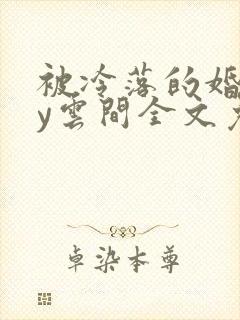 被冷落的婚
y雲間全文
卓染本尊